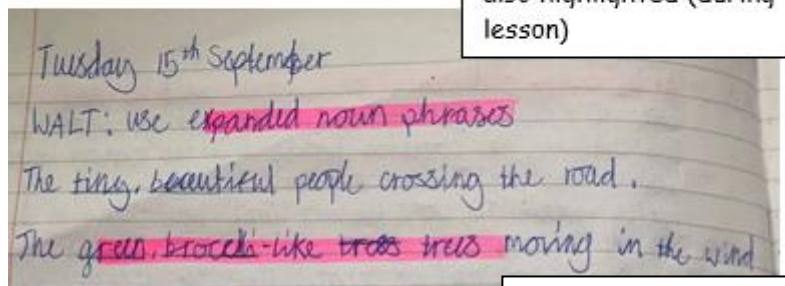 also highlighted (during
lesson)
Tuesday 15th September
WALT: use expanded noun phrases
The tiny, beautiful people crossing the road.
The green, brocelli-like trees trees moving in the wind